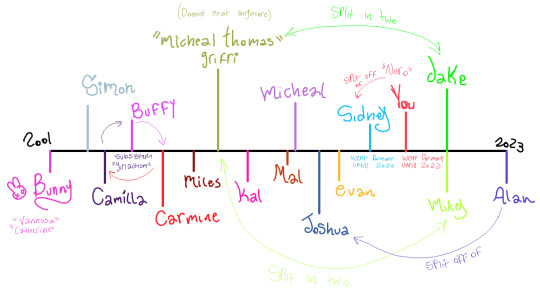 (Doesnt exist anymore)
"Micheal thomas"
griffi
Split in two
Jake
Simon
Buffy
Micheal
Split off of
"Nero"
You
Sidney
2001
2023
Bunny
"Vanessa"
"Catherine"
Camilla
Subsystem
Carmine
Miles
Kal
Mal
Joshua
Evan
Went Dormant
Until 2022
Went Dormant
Until 2022
Mikey
Alan
Split off of
Split in two